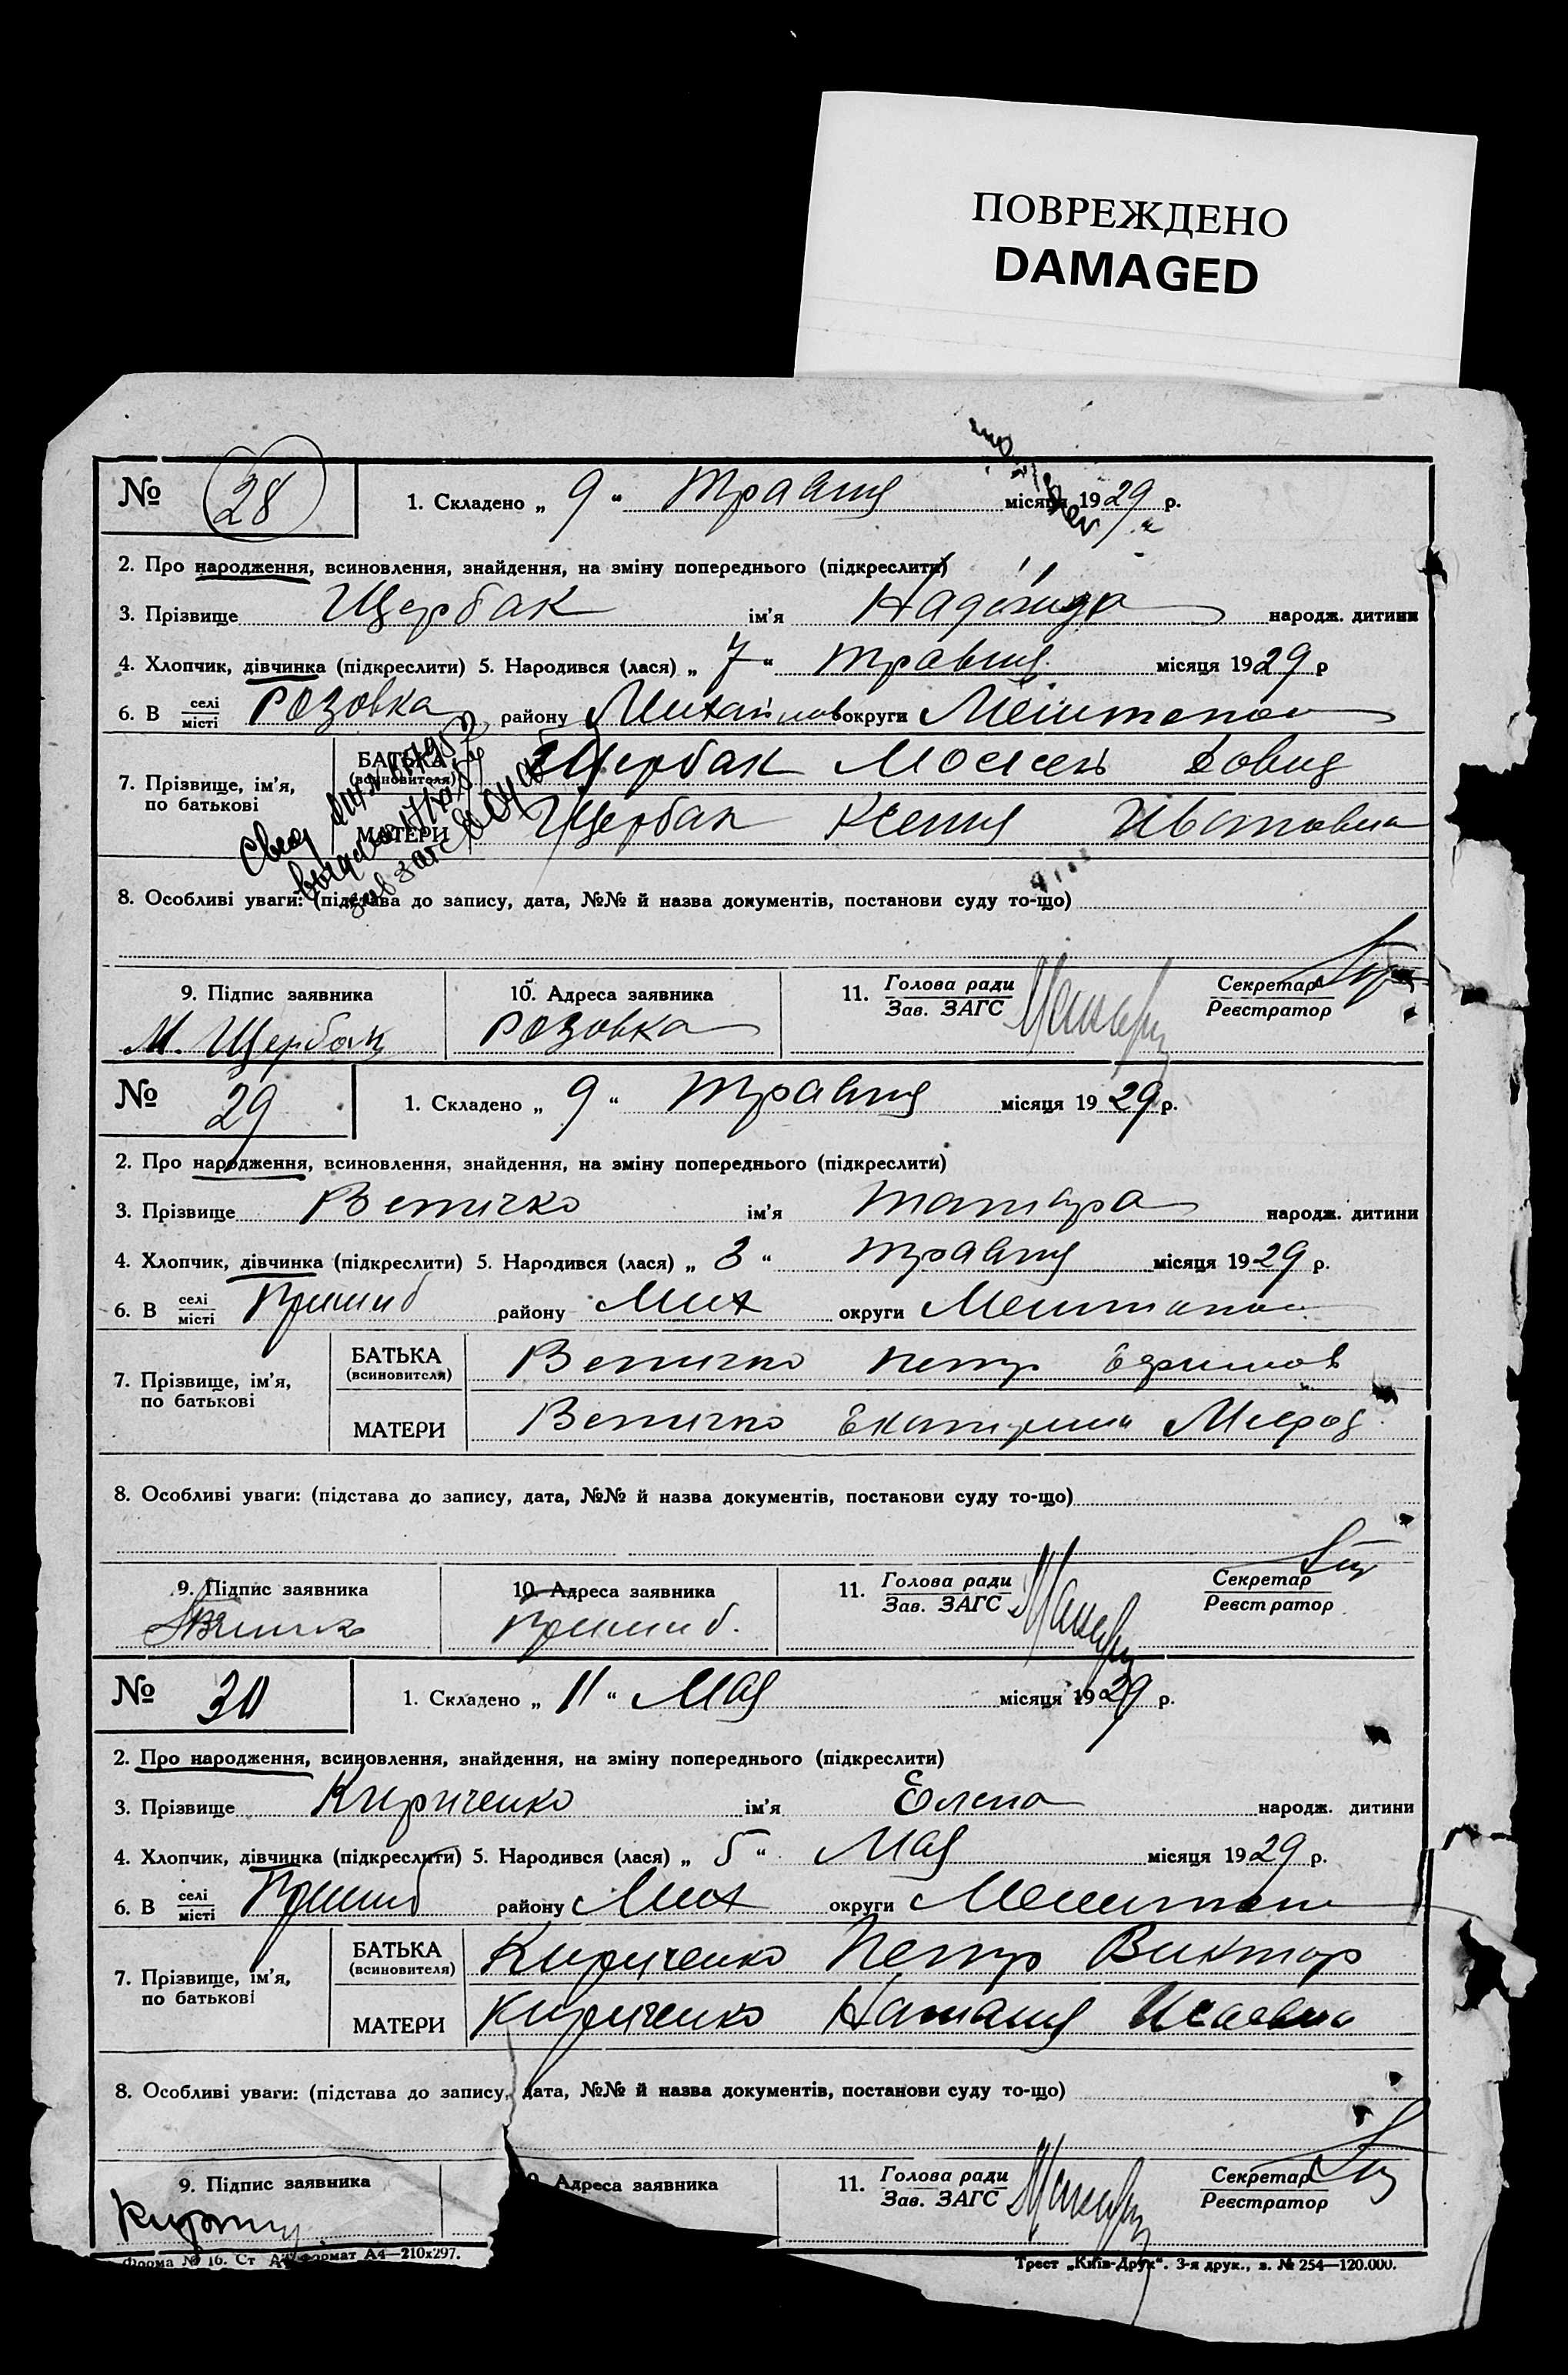 ПОВРЕЖДЕНО
DAMAGED
№ 28 1. Складено „ 9 “ Травня місяця 1929 р.
2. Про народження, всиновлення, знайдення, на зміну попереднього (підкреслити)
3. Прізвище Щербак ім'я Надежда народж. дитини
4. Хлопчик, дівчинка (підкреслити) 5. Народився (лася) „ 7 “ травня місяця 1929 р
6. В селі місті Розовка району Михайлов округи
7. Прізвище, ім'я, по батькові
БАТЬКА (всиновителя) Щербак Моисей Довид
МАТЕРИ Щербак Ксения Ивановна
8. Особливі уваги: (підстава до запису, дата, №№ й назва документів, постанови суду то-що)
9. Підпис заявника 10. Адреса заявника 11. Голова ради Зав. ЗАГС Секретар Реєстратор
М. Щербак Розовка
№ 29 1. Складено „ 9 “ Травня місяця 1929 р.
2. Про народження, всиновлення, знайдення, на зміну попереднього (підкреслити)
3. Прізвище Величко ім'я Тамара народж. дитини
4. Хлопчик, дівчинка (підкреслити) 5. Народився (лася) „ 3 “ травня місяця 1929 р.
6. В селі місті Пришиб району Мих округи
7. Прізвище, ім'я, по батькові
БАТЬКА (всиновителя) Величко Петр Ефимов
МАТЕРИ Величко Екатерина
8. Особливі уваги: (підстава до запису, дата, №№ й назва документів, постанови суду то-що)
9. Підпис заявника 10. Адреса заявника 11. Голова ради Зав. ЗАГС Секретар Реєстратор
Пришиб.
№ 30 1. Складено „ 11 “ Мая місяця 1929 р.
2. Про народження, всиновлення, знайдення, на зміну попереднього (підкреслити)
3. Прізвище Кириченко ім'я Елена народж. дитини
4. Хлопчик, дівчинка (підкреслити) 5. Народився (лася) „ 5 “ Мая місяця 1929 р.
6. В селі місті Пришиб району Мих округи
7. Прізвище, ім'я, по батькові
БАТЬКА (всиновителя) Кириченко Петр Виктор
МАТЕРИ Кириченко Наталия Исаевна
8. Особливі уваги: (підстава до запису, дата, №№ й назва документів, постанови суду то-що)
9. Підпис заявника Адреса заявника 11. Голова ради Зав. ЗАГС Секретар Реєстратор
Форма № 16. Ст формат А4—210x297. Трест „Київ-Друк“. 3-я друк., з. № 254—120.000.